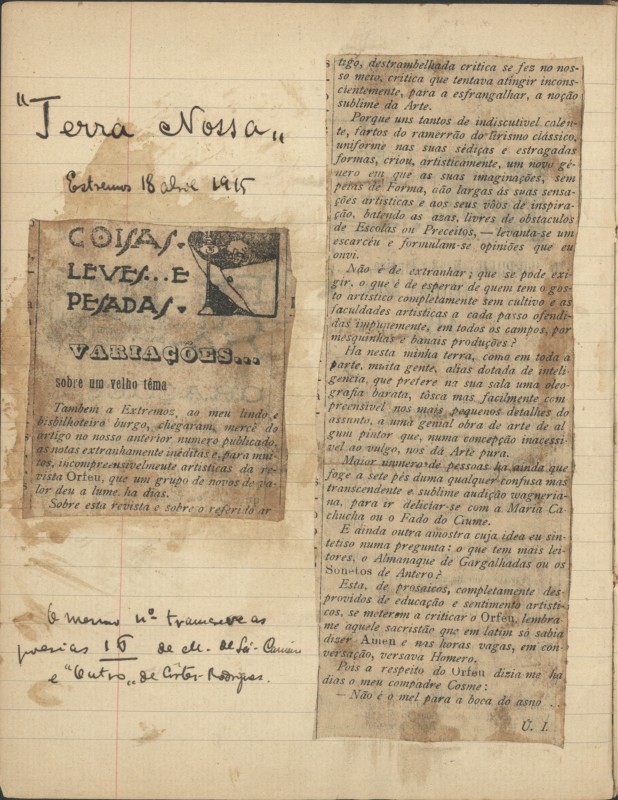 "Terra Nossa"
Estremos 18 abril 1915
COISAS.
LEVES...E
PESADAS.
VARIAÇÕES...
sobre um velho têma
Tambem a Extremoz, ao meu lindo e
bisbilhoteiro burgo, chegaram, mercê do
artigo no nosso anterior numero publicado,
as notas extranhamente inéditas e, para mui-
tos, incompreensivelmente artisticas da re-
vista Orfeu, que um grupo de novos de va-
lor deu a lume, ha dias.
Sobre esta revista e sobre o referido ar
tigo, destrambelhada critica se fez no nos-
so meio, critica que tentava atingir incons-
cientemente, para a esfrangalhar, a noção
sublime da Arte.
Porque uns tantos de indiscutivel calên-
te, fartos do ramerrão do lirismo clássico,
uniforme nas suas sédiças e estragadas
formas, criou, artisticamente, um novo gé-
nero em que as suas imaginações, sem
peias de Forma, dão largas ás suas sensa-
ções artisticas e aos seus vôos de inspira-
ção, batendo as azas, livres de obstaculos
de Escolas ou Preceitos, — levanta-se um
escarcéu e formulam-se opiniões que eu
ouvi.
Não é de extranhar; que se pode exi-
gir, o que é de esperar de quem tem o gos-
to artistico completamente sem cultivo e as
faculdades artisticas a cada passo ofendi-
das impunemente, em todos os campos, por
mesquinhas e banais produções?
Ha nesta minha terra, como em toda a
parte, muita gente, alias dotada de inteli-
gencia, que prefere na sua sala uma oleo-
grafia barata, tôsca mas facilmente com-
preensivel nos mais pequenos detalhes do
assunto, a uma genial obra de arte de al
gum pintor que, numa concepção inacessi-
vel ao vulgo, nos dá Arte pura.
Maior unmero de pessoas ha ainda que
foge a sete pès duma qualquer confusa mas
transcendente e sublime audição wagneria-
na, para ir deliciar-se com a Maria Ca-
chucha ou o Fado do Ciume.
E ainda outra amostra cuja idea eu sin-
tetiso numa pregunta: o que tem mais lei-
tores, o Almanaque de Gargalhadas ou os
Sonetos de Antero?
Esta, de prosaicos, completamente des-
providos de educação e sentimento artisti-
cos, se meterem a criticar o Orfeu, lembra-
me aquele sacristão que em latim só sabia
dizer Amen e nas horas vagas, em con-
versação, versava Homero.
Pois a respeito do Orfeu dizia-me ha
dias o meu compadre Cosme:
— Não é o mel para a boca do asno...
U. I.
O mesmo nº transcreve as
poesias 16 de M. de Sá-Carneiro
e "Outro" de Côrtes-Rodrigues.